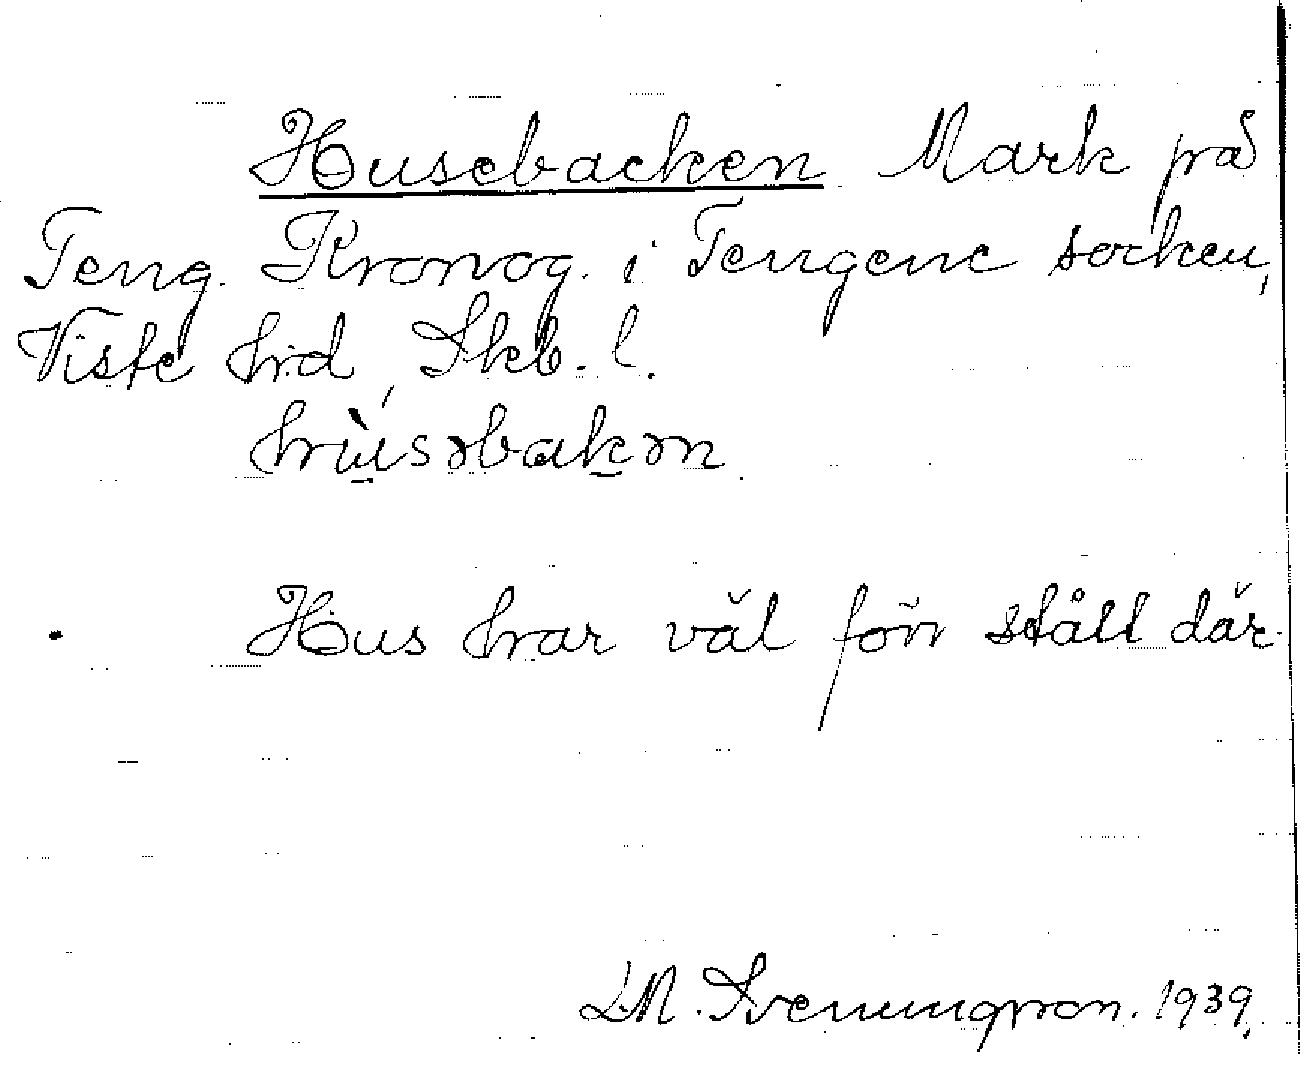 Husebacken Mark på
Teng. Kronog. i Tengene socken,
Viste hrd, Skb. l.
hùsəbakən
Hus har väl förr stått där.
L.M. Svenungsson. 1939.